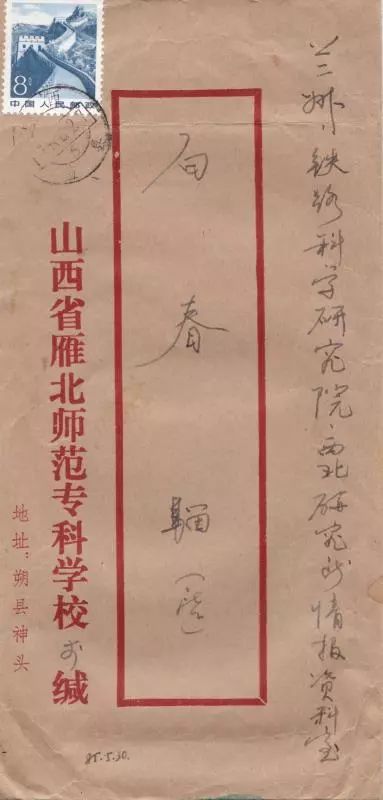 兰州铁路科学研究院·西北研究所情报资料室
春
山西省雁北师范专科学校 缄
地址:朔县神头
85.5.30.
8分
中国人民邮政